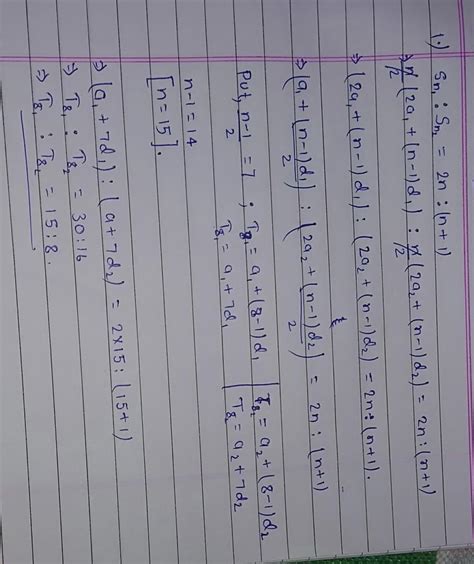 1.) Sn₁ : Sn₂ = 2n : (n+1)
⇒ n/2 (2a₁ + (n-1)d₁) : n/2 (2a₂ + (n-1)d₂) = 2n : (n+1)
⇒ (2a₁ + (n-1)d₁) : (2a₂ + (n-1)d₂) = 2n : (n+1).
⇒ (a₁ + (n-1)d₁/2) : (2a₂ + (n-1)d₂/2) = 2n : (n+1)
Put, n-1/2 = 7 ; T₈₁ = a₁ + (8-1)d₁ | T₈₂ = a₂ + (8-1)d₂
T₈₁ = a₁ + 7d₁ | T₈₂ = a₂ + 7d₂
n-1 = 14
[n = 15].
⇒ (a₁ + 7d₁) : (a + 7d₂) = 2×15 : (15+1)
⇒ T₈₁ : T₈₂ = 30:16
⇒ T₈₁ : T₈₂ = 15:8.